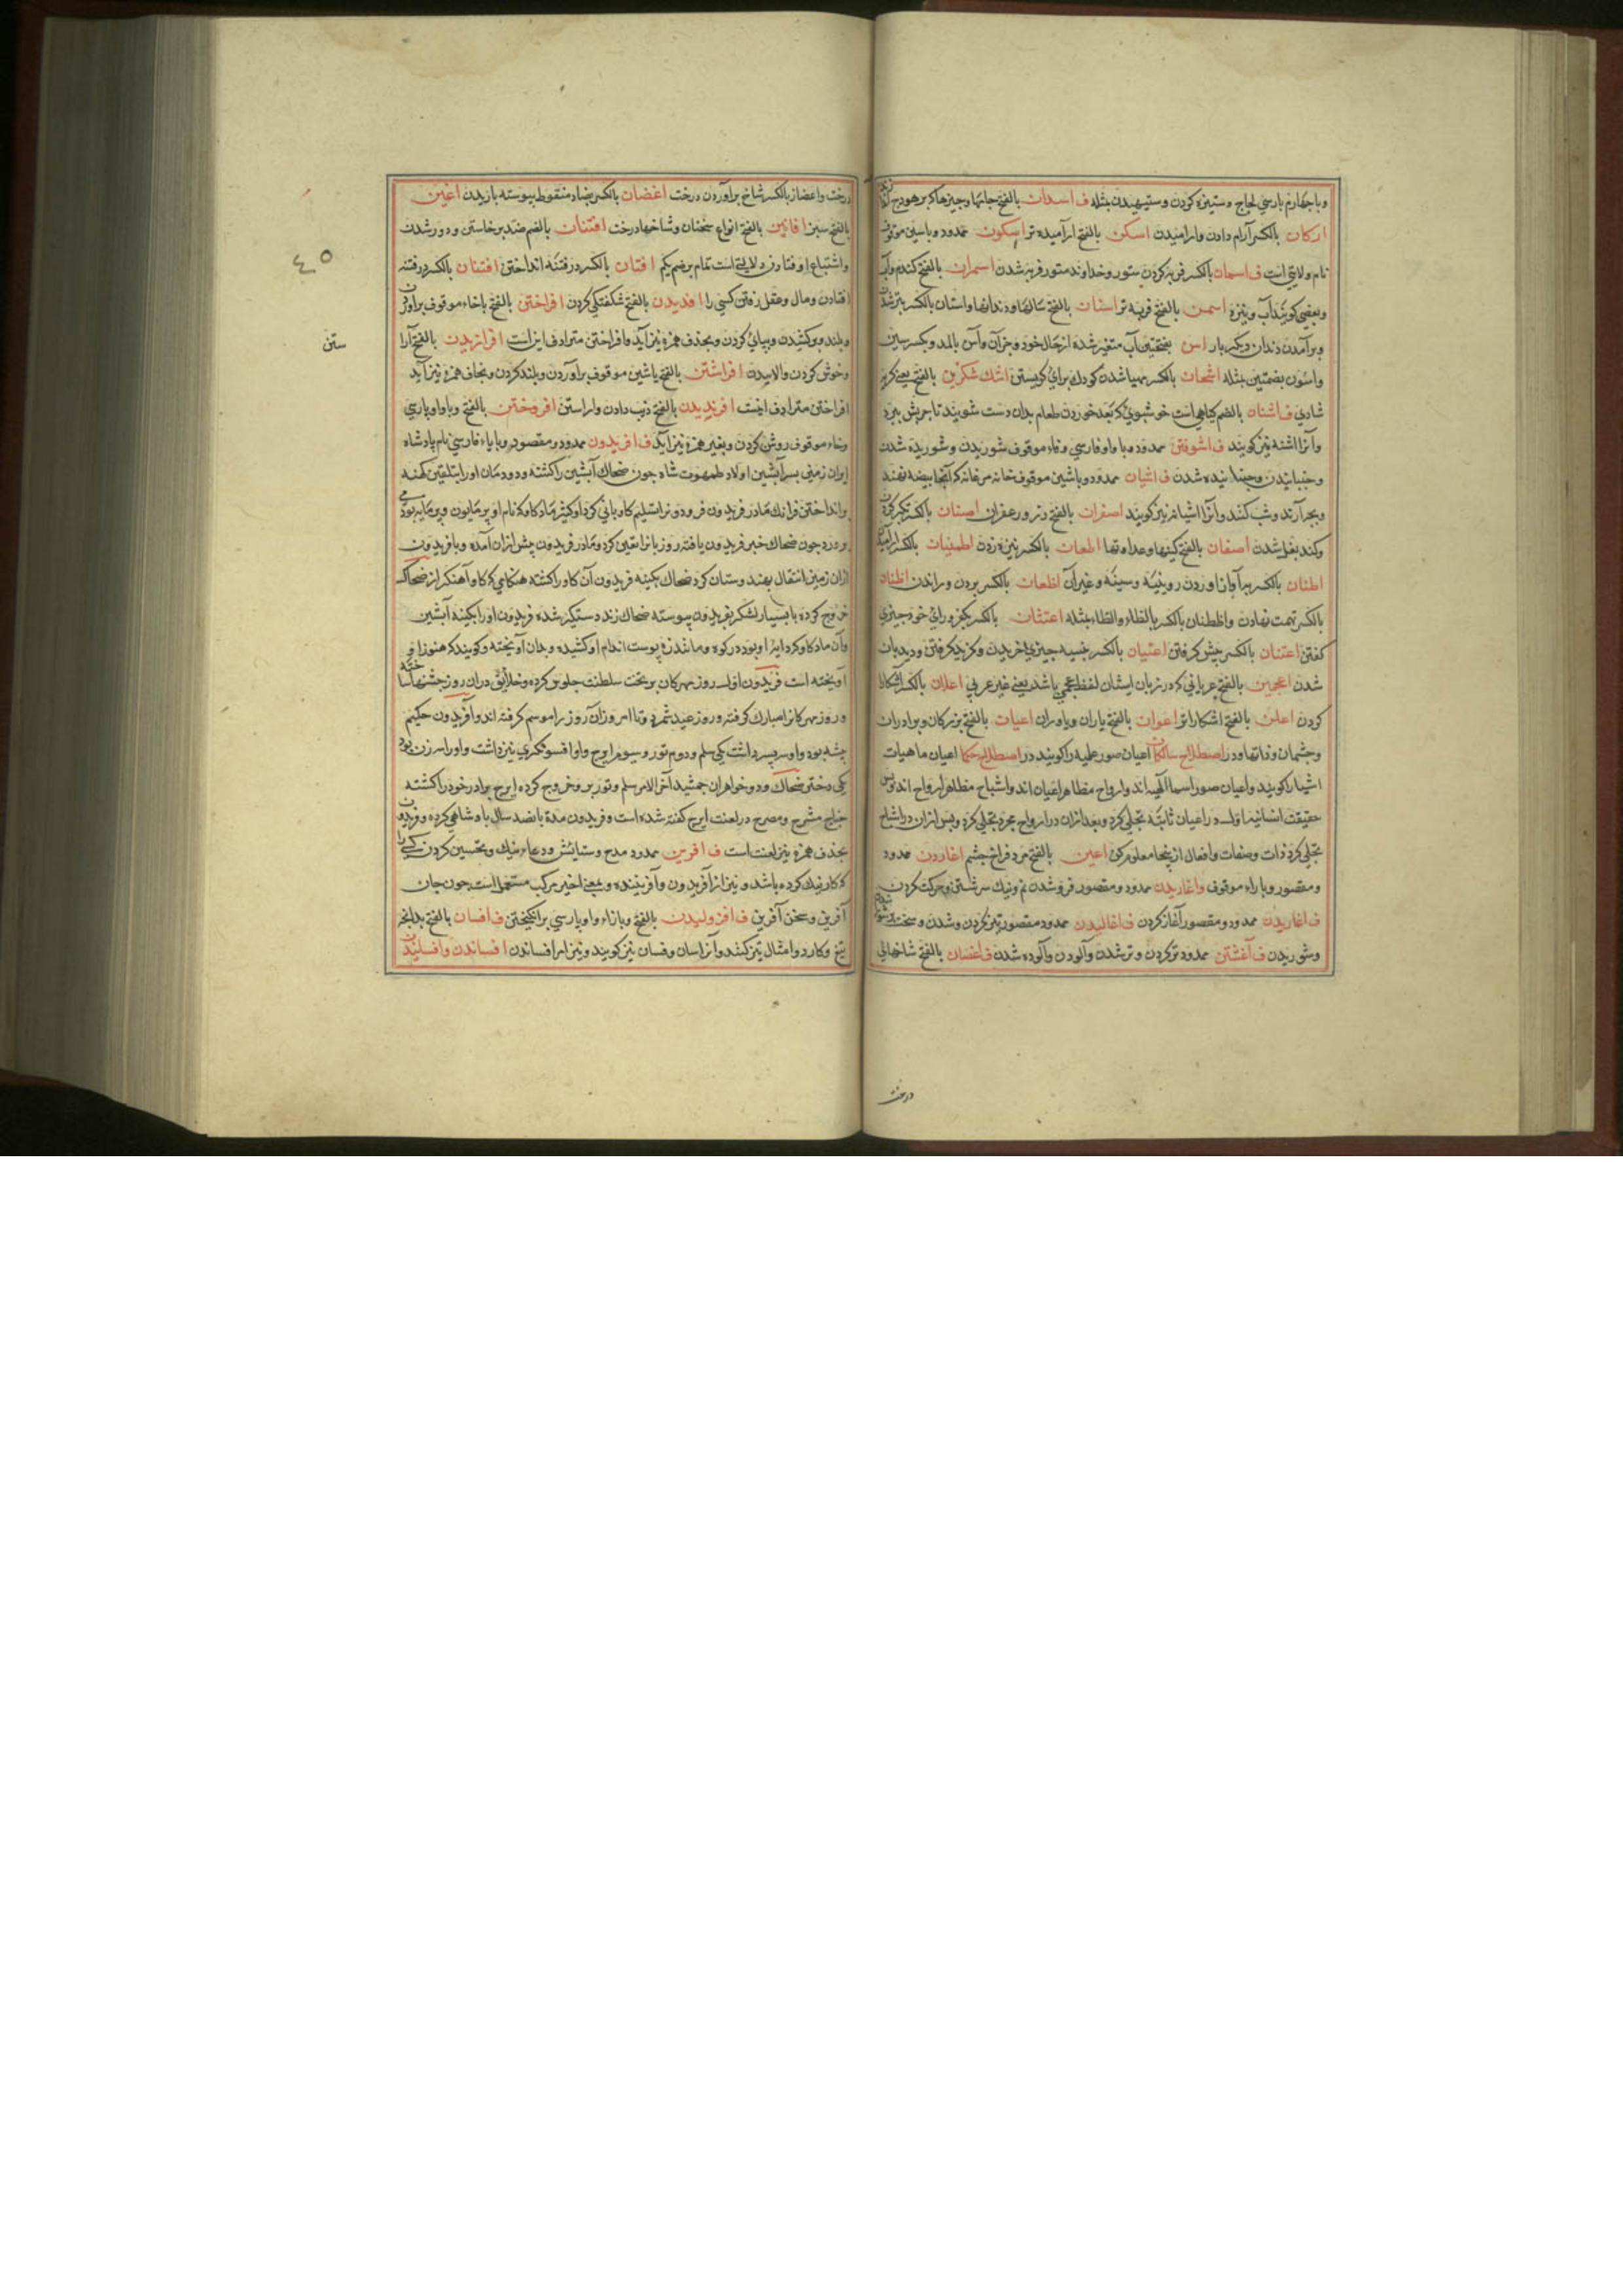 وباجهارم پارسي لجاج وستيزه كردن وستيهيدن مثله ف اسدان بالفتح جامها وچيزها كه بر هودج
اركان بالكسر آرام دادن وارامنيدن اسكن بالفتح ارآميده تر اسكون ممدود وباسين موقوف
نام ولايتي است ف اسمان بالكسر فربه كردن ستور وخداوند ستور فربه شدن اسمران بالفتح كندم وآب
وبعضي كويند آب ونيزه اسمن بالفتح فربه تر اسنان بالفتح سالها ودندانها واسنان بالكسر
وبرآمدن دندان ديكر بار اسن بفتحتين آب متغير شده از حال خود وجز آن وآسن بالمد وبكسر سين
واسون بضمتين مثله اشحان بالكسر مهيا شدن كودك براي كريستن اشك شكرين بالفتح يعني كريه
شادي ف اشنان بالضم كياهي است خوشبوي كه بعد خوردن طعام بدان دست شويند تا چربش ببرد
وآنرا اشنه نيز كويند ف اشوفتن ممدود وبا واو فارسي وفاء موقوف شوريدن وشوريده شدن
وجنبانيدن وجنبانيده شدن ف اشيان ممدود وباشين موقوف خانه مرغانه كه آنجا بيضه نهند
وبچه آرند وشب كنند وآنرا اشيانه نيز كويند اصفران بالفتح زر وزعفران اصنان بالكسر تكبر كردن
وكند بغل شدن اضغان بالفتح كينها وعداوتها اطعان بالكسر نيزه زدن اطمينان بالكسر
اطنان بالكسر برآواز اوردن رويينه وسينه وغير آن اظعان بالكسر بردن وراندن اظنان
بالكسر تهمت نهادن واظطنان بالكسر بالظاء والطاء مثله اعتثان بالكسر
كفتن اعتنان بالكسر پيش كرفتن اعتيان بالكسر بنسيه چيزي خريدن وكزيد كرفتن وديدبان
شدن اعجمين بالفتح عرباني كه در زبان ايشان لفظ عجمي باشد يعني غير عربي اعلان بالكسر آشكارا
كردن اعلن بالفتح اشكاراتر اعوان بالفتح ياران وياوران اعيان بالفتح بزركان وبرادران
وچشمان وذاتها ودر اصطلاح سالكان اعيان صور علميه را كويند در اصطلاح حكما اعيان ماهيات
اشيا را كويند واعيان صور اسما الهيه اند وارواح مظاهر اعيان اند واشباح مظاهر ارواح اند پس
حقيقت انسانيه اول در اعيان ثابته تجلي كرد وبعد ازان در ارواح مجرد تجلي كرد وپس ازان در اشباح
تجلي كرد ذات وصفات وافعال از ينجا معلوم كن اعين بالفتح مرد فراخ چشم اغاردن ممدود
ومقصور وبا راء موقوف واغاريدن ممدود ومقصور فرو شدن نم ونيك سرشتن وحركت كردن
ف اغازيدن ممدود ومقصور آغاز كردن ف اغاليدن ممدود ومقصور تيز كردن وشدن وسخت
وشوريدن ف آغشتن ممدود تر كردن وتر شدن وآلودن وآلوده شدن ف اغصان بالفتح شاخهاي
درخت
درخت واغصان بالكسر شاخ برآوردن درخت اغضان بالكسر بضاد منقوطه پيوسته باريدن اغين
بالفتح سبز افانين بالفتح انواع سخنان وشاخها درخت افتنان بالضم ضد برخاستن ودور شدن
٤٥
واشتباع اوفتادن ولايتي است تمام افتان بالكسر در فتنه انداختن افتنان بالكسر در فتنه
افتادن ومال وعقل رفتن كسي را افديدن بالفتح شكفتكي كردن افراختن بالفتح باخاء موقوف برآوردن
وبلند وبركشيدن وبپاي كردن وبحذف همزه نيز آيد وافراختن مترادف اين است افرازيدن بالفتح آرا
ستن
وخوش كردن افراشتن بالفتح باشين موقوف برآوردن وبلند كردن وبحذف همزه نيز آيد
افراختن مترادف اينست افرنديدن بالفتح زيب دادن واراستن افروختن بالفتح وباواو پارسي
وخاء موقوف روشن كردن وبغير همزه نيز آيد ف افريدون ممدود ومقصود وباياء فارسي نام پادشاه
ايران زمين پسر آبشين اولاد طهمورث شاه چون ضحاك آبشين را كشته
وانداختن فرانك مادر فريدون فريدون را تسليم كاوباني كرد
ودرد چون ضحاك خبر فريدون يافته روز بانرا تعين كرد ومادر فريدون پيش ازان آمده وبا فريدون
ازان زمين انتقال بهندوستان كرد ضحاك بكينه فريدون آن كاو را كشته هنكامي كه كاوآهنكر از ضحاك
خروج كرده با بسيار لشكر بفريدون پيوسته ضحاك زند دستكير شده فريدون اورا بكينه آبشين
وآن ماده كاو در كوه دماوند زه پوست اندام او كشيده وبدان آويخته وكويند كه هنوز او
آويخته است فريدون اول روز مهركان بر تخت سلطنت جلوس كرده وخلايق دران روز جشنها ساخته
وروز مهركانرا مبارك كرفته وروز عيد شمرد وتا امروز آن روز را موسم كرفته اند وآفريدون حكيم
پيشه بود واو سه پسر داشت يكي سلم ودوم تور وسيوم ايرج واو افسونكري نيز داشت واورا سه زن بود
يكي دختر ضحاك ودو خواهران جمشيد آخر الامر سلم وتور بر وخروج كرده ايرج برادر خود را كشته
چنانچ مشرح ومصرح در لغت ايرج كفته شده است وفريدون مدة پانصد سال پادشاهي كرده وفريدون
بحذف همزه نيز لغت است ف آفرين ممدود مدح وستائش ودعاء نيك وتحسين كردن كسي را
كه كار نيك كرده باشد ونيز از آفريدون وآفريننده وبمعني اخير مركب مستعمل است چون جان
آفرين وسخن آفرين ف افژوليدن بالفتح وبازاء وواو پارسي برانكيختن ف افسان بالفتح بدانچه
تيغ وكارد وامثال تيز كنند وآنرا سان وفسان نيز كويند ونيز امر افساندن افساندن وافسانيدن